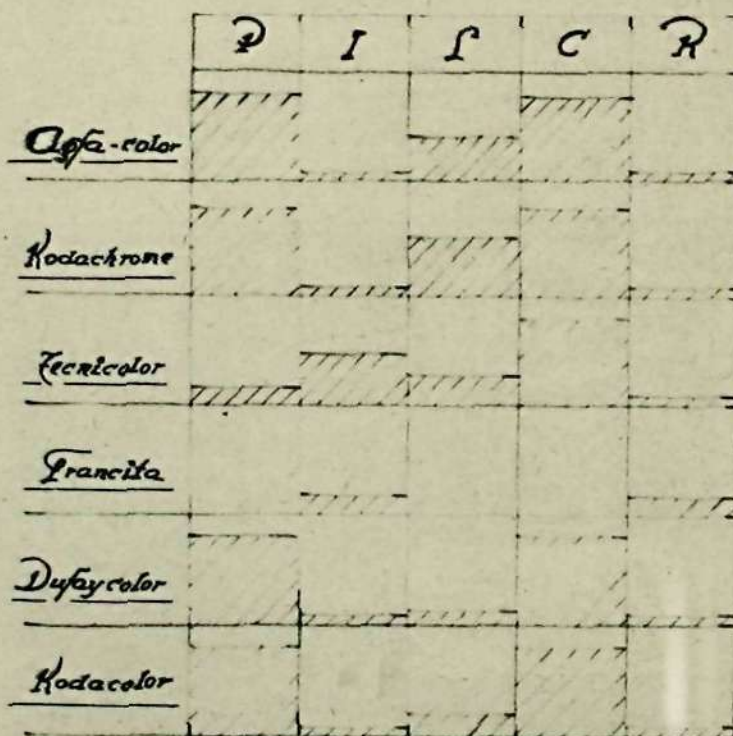 P I L C R
Agfa-color
Kodachrome
Tecnicolor
Francita
Dufaycolor
Kodacolor